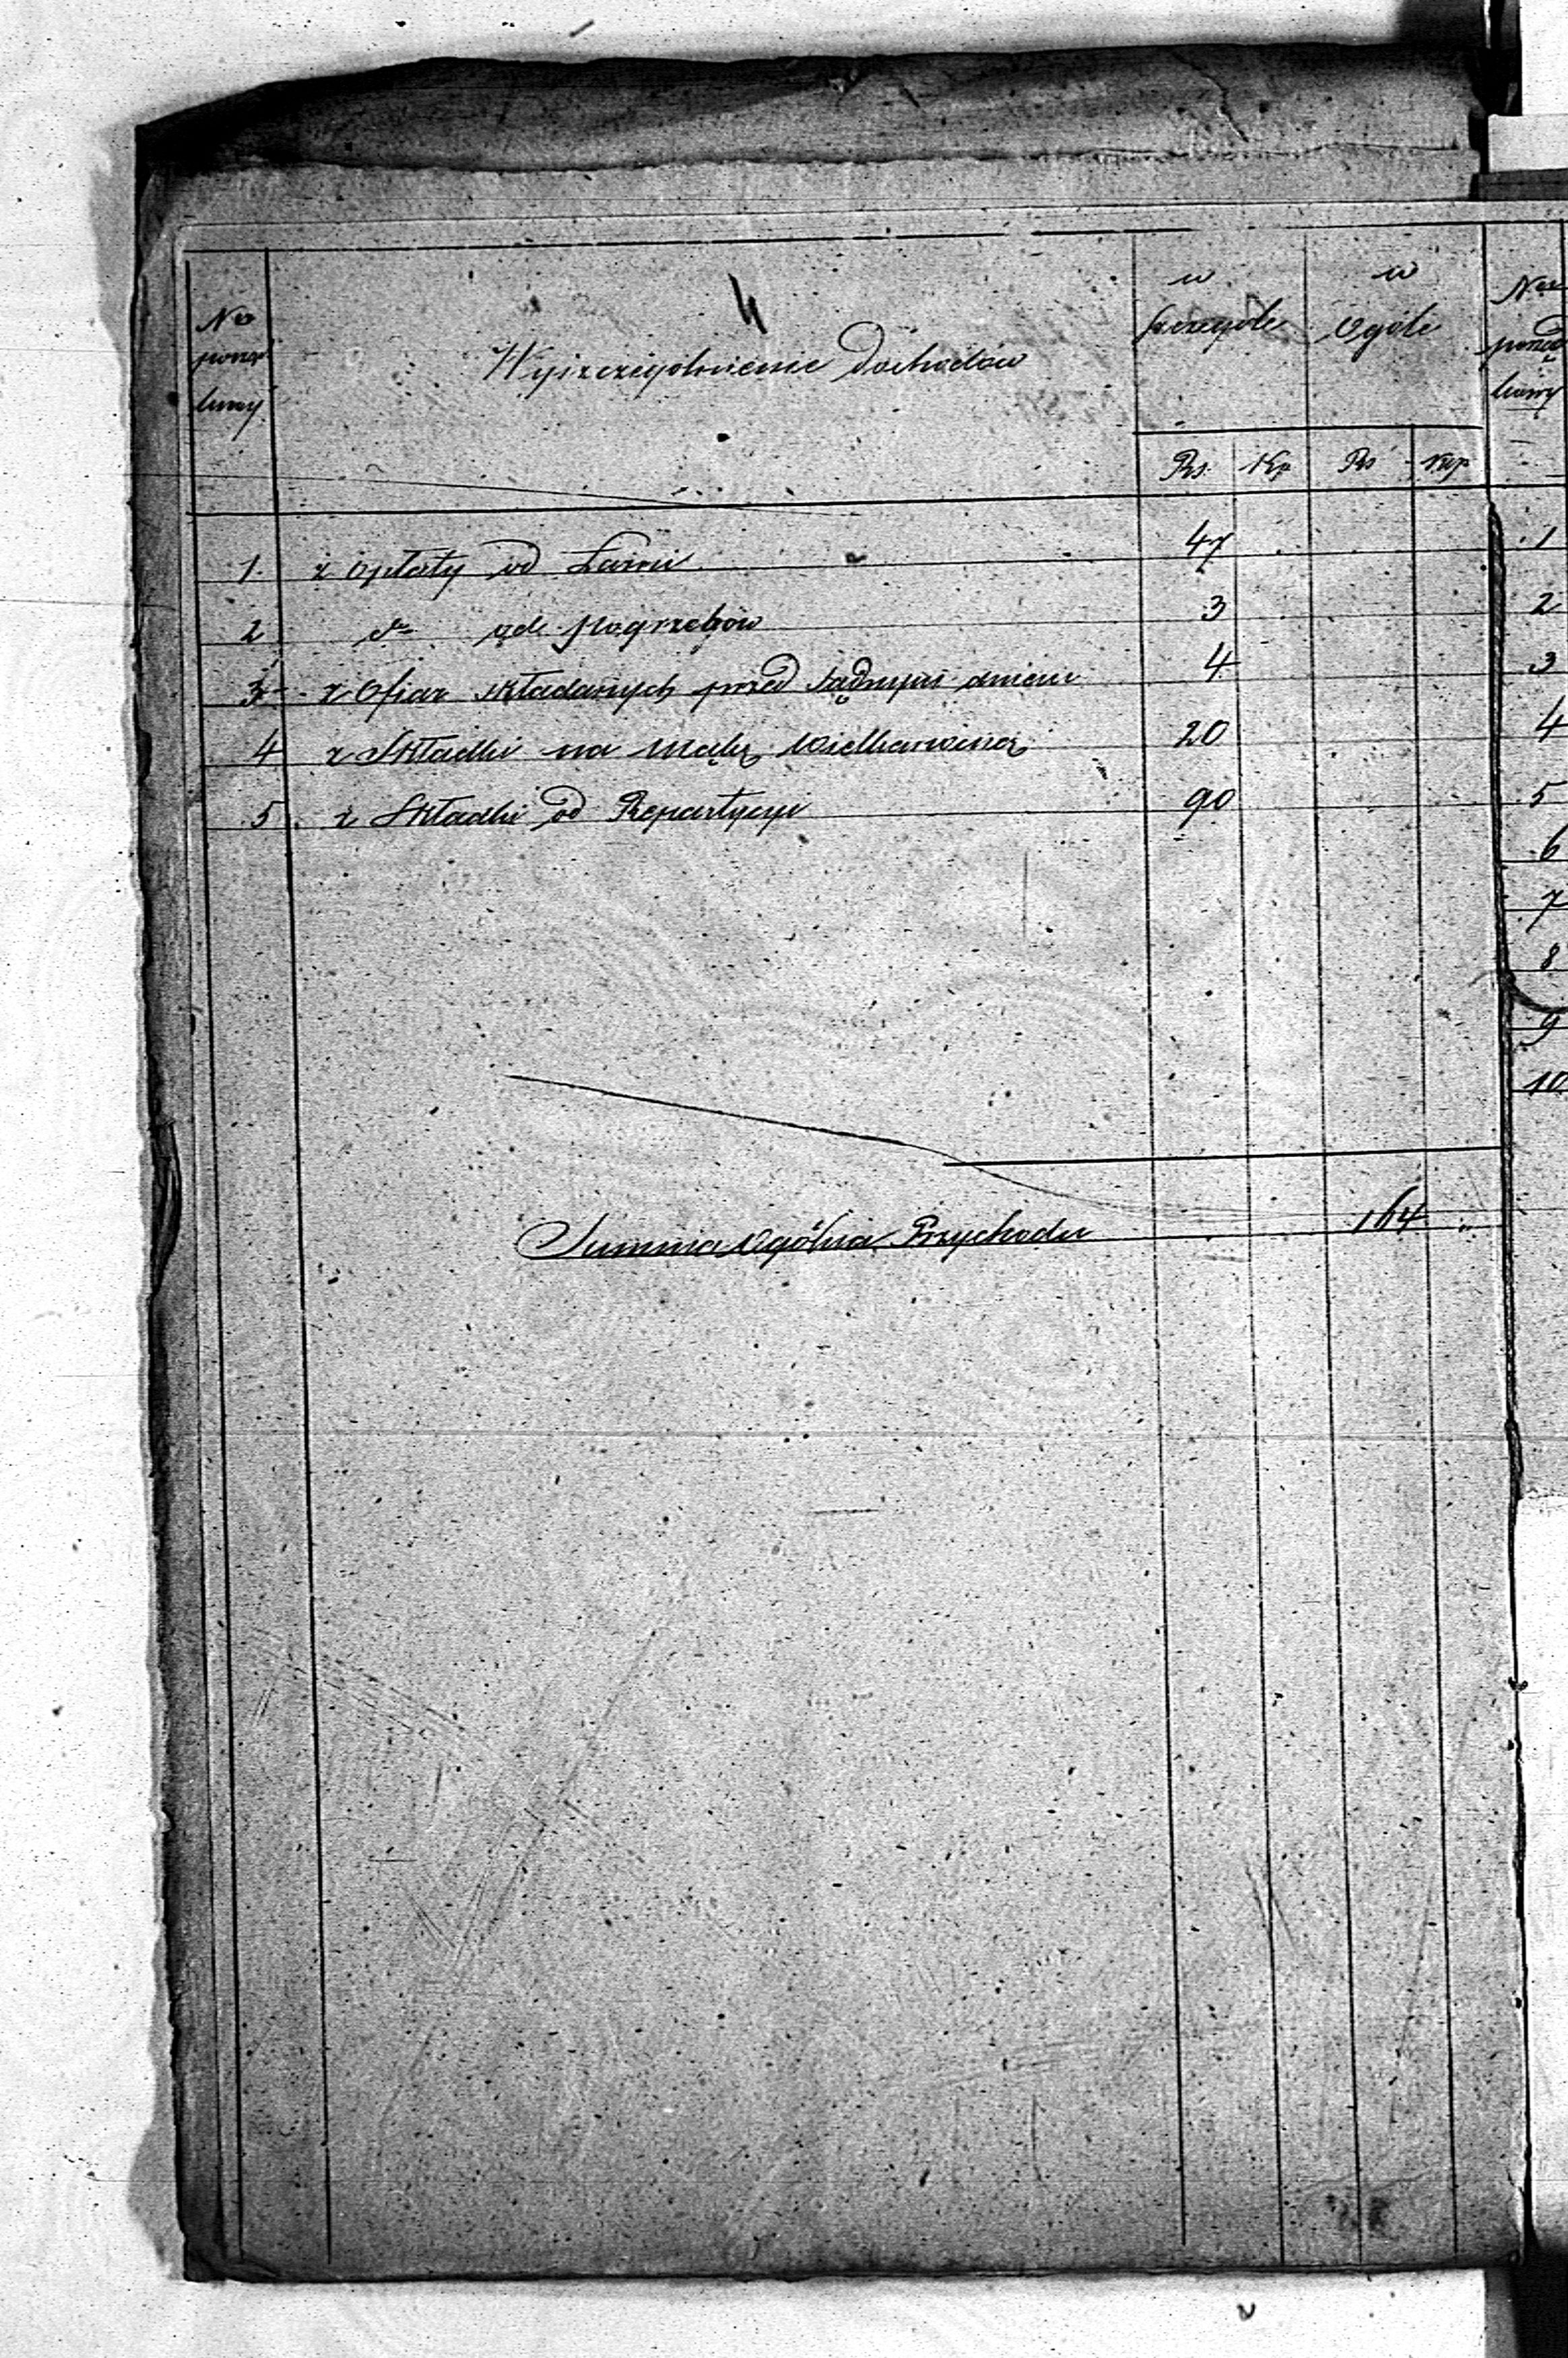 No porząd kowy
Wyszczególnienie Dochodów
w Szczególe
w Ogóle
Rs. Kp Rs Kop
1. z Opłaty od Łaźni 47
2 do od Pogrzebów 3
3 z Ofiar składanych przed Sądnym dniem 4
4 z Składki na mąkę Wielkanocną 20
5 z Składki od Repartycyi 90
Summa Ogólna Przychodu 164
No porząd kowy
1
2
3
4
5
6
7
8
9
10